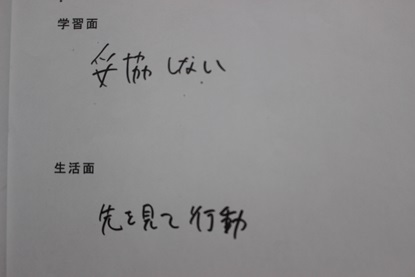 学習面
妥協しない
生活面
先を見て行動